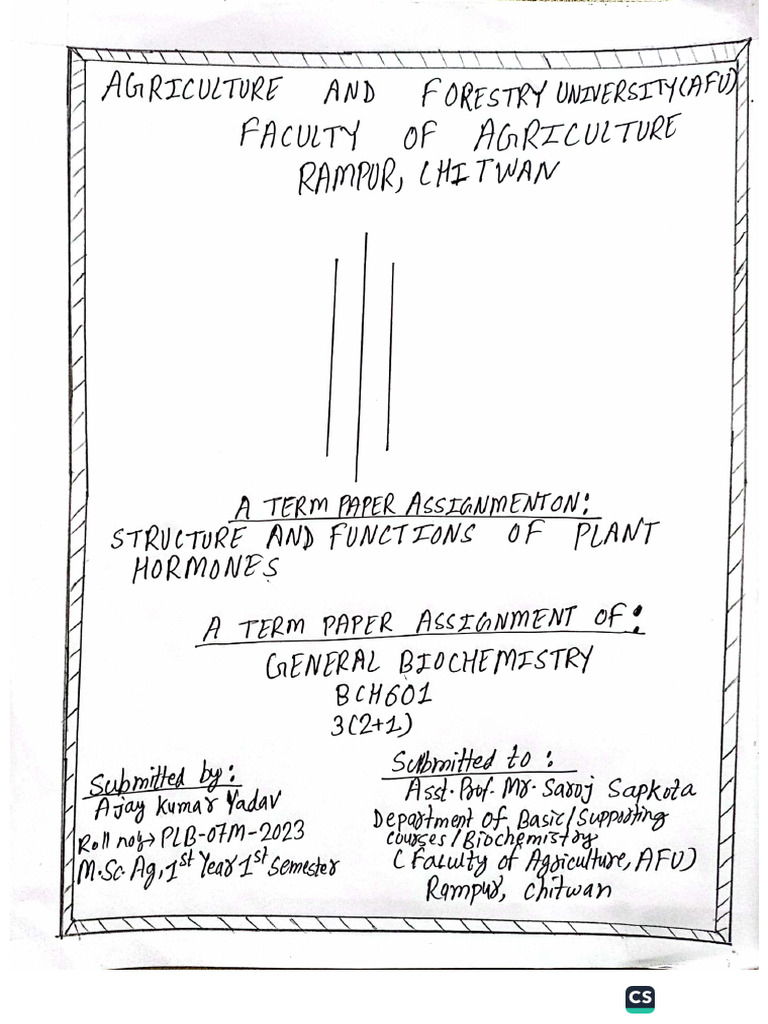 AGRICULTURE AND FORESTRY UNIVERSITY(AFU)
FACULTY OF AGRICULTURE
RAMPUR, CHITWAN
A TERM PAPER ASSIGNMENT ON:
STRUCTURE AND FUNCTIONS OF PLANT
HORMONES
A TERM PAPER ASSIGNMENT OF:
GENERAL BIOCHEMISTRY
BCH601
3(2+1)
Submitted by:
Ajay Kumar Yadav
Roll no:→ PLB-07M-2023
M.Sc. Ag, 1st Year 1st Semester
Submitted to:
Asst. Prof. Mr. Saroj Sapkota
Department of Basic/Supporting
courses/Biochemistry
(Faculty of Agriculture, AFU)
Rampur, Chitwan
CS